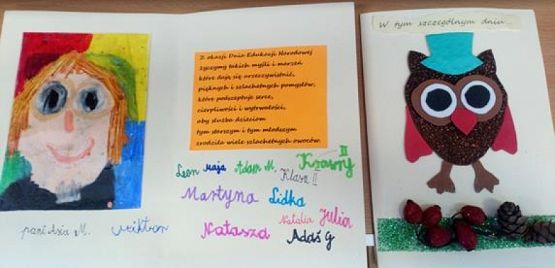 Z okazji Dnia Edukacji Narodowej
życzymy takich myśli i marzeń
które dają się urzeczywistnić,
pięknych i szlachetnych pomysłów,
które podszeptuje serce,
cierpliwości i wytrwałości,
aby służba dzieciom
tym starszym i tym młodszym
zrodziła wiele szlachetnych owoców.
Leon Maja Adam M. II
Klasa II
Martyna Lidka
Natalia Julia
Natasza Adaś G
pani Asia M. Wiktor
W tym szczególnym dniu...